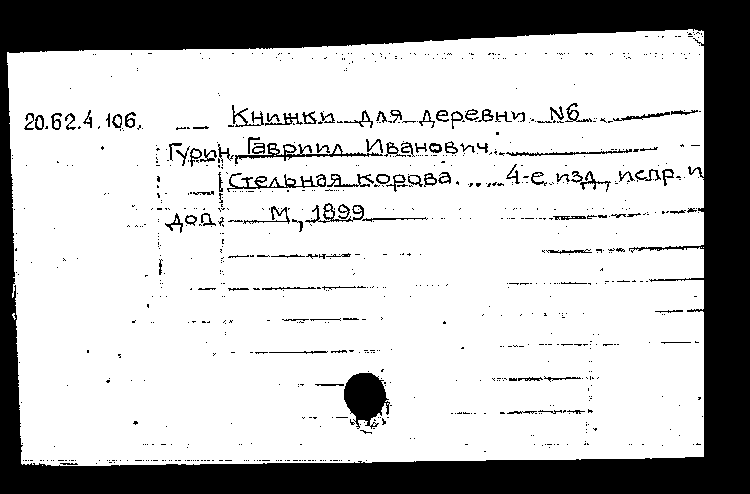 20.62.4.106. Книжки для деревни N6
Гурин, Гавриил Иванович.
Стельная корова. .... 4-е изд., испр. и
доп. М., 1899